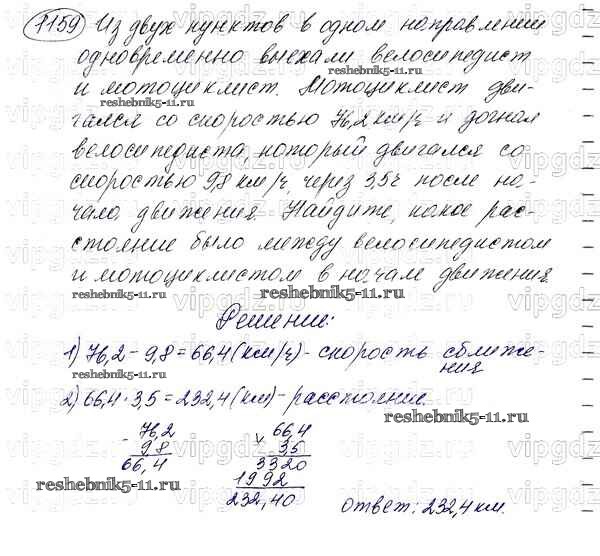 1159 Из двух пунктов в одном направлении
одновременно выехали велосипедист
и мотоциклист. Мотоциклист дви-
reshebnik5-11.ru
гался со скоростью 76,2 км/ч и догнал
велосипедиста, который двигался со
скоростью 9,8 км/ч, через 3,5 ч после на-
чала движения. Найдите, какое рас-
стояние было между велосипедистом
и мотоциклистом в начале движения.
reshebnik5-11.ru reshebnik5-11.ru
Решение:
1) 76,2 - 9,8 = 66,4 (км/ч) - скорость сближе-
ния
reshebnik5-11.ru
2) 66,4 · 3,5 = 232,4 (км) - расстояние.
reshebnik5-11.ru
- 76,2 × 66,4
9,8 3,5
66,4 3320
1992
reshebnik5-11.ru
232,40
ответ: 232,4 км.
reshebnik5-11.ru